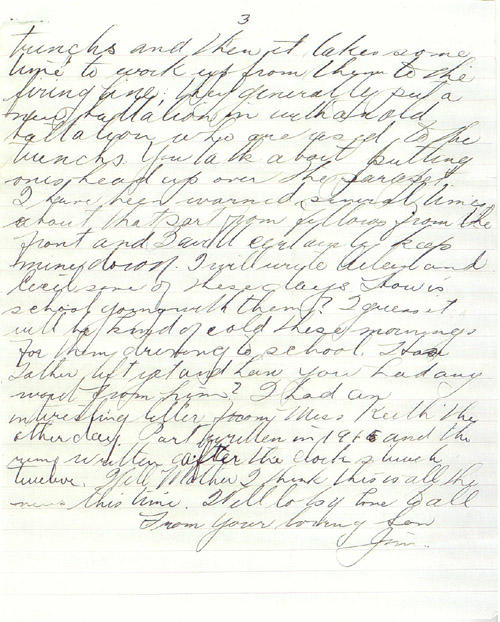 3
trunchs and then it takes some
time to work up from them to the
firing line, they generally put a
new battalion in with an old
battalion, who are used to the
trunchs. You talk about putting
ones head up over the parapet.
I have been warned several times
about that part from fellows from the
front and I will certainly keep
mine down. I will write Allen and
these days. How is
school going with them? I guess it
will be kind of cold these mornings
for them driving to school. Has
Father left yet and have you had any
word from him? I had an
interesting letter from Miss Keith the
other day. Part written in 1915 and the
written after the clock struck
twelve. Well Mother I think this is all the
news this time. Well by love to all
From your loving Son
Jim.